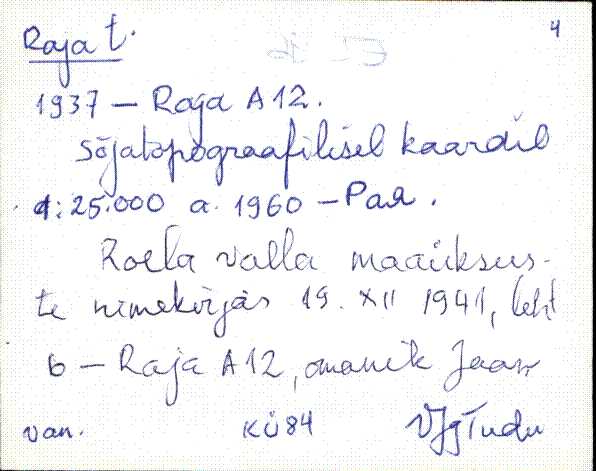 Raja t. 4
1937 – Raja A12.
Sõjatopograafilisel kaardil
1:25.000 a. 1960 – Рая.
Roela valla maaüksus-
te nimekirjas 19. XII 1941, leht
6 – Raja A12, omanik Jaan
van. KÜ84 VJg Tudu